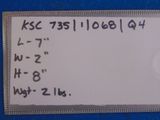 KSC 735/1/068/Q4
L- 7"
W- 2"
H- 8"
Wgt- 2 lbs.